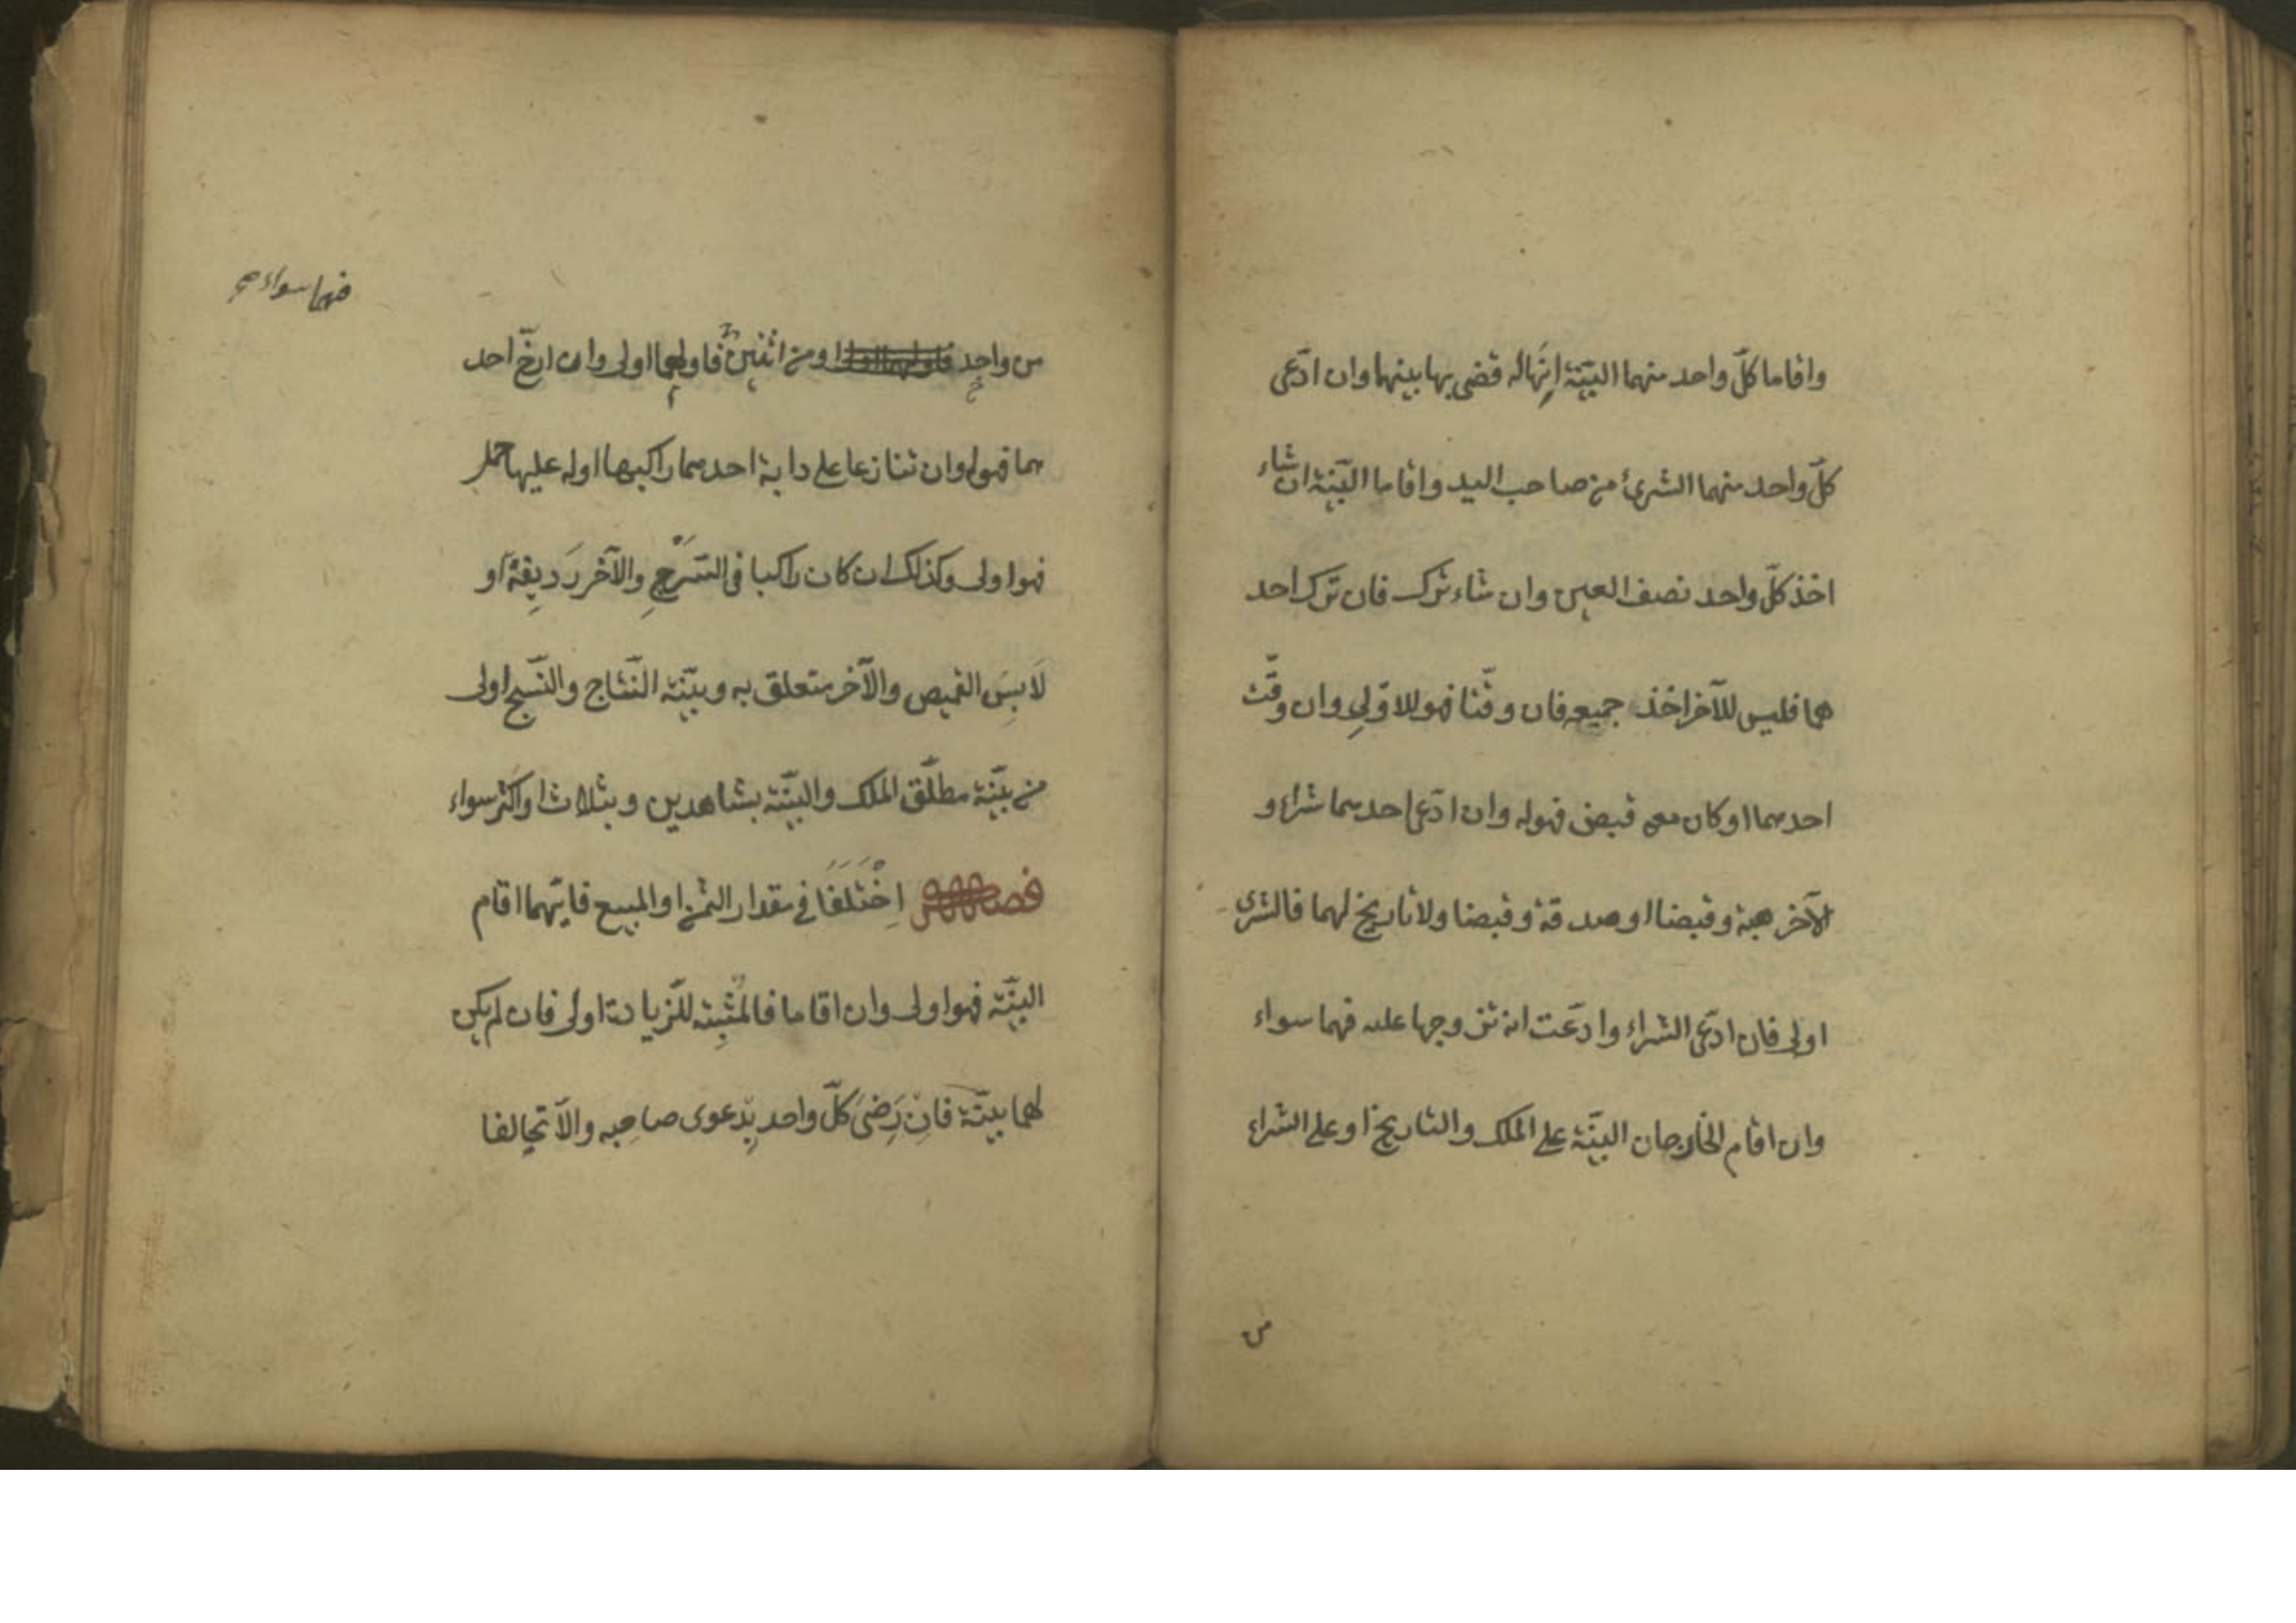 واقاما كلّ واحد منهما البيّنة انّها له قضى بها بينهما وان ادّعى
كلّ واحد منهما الشرىٔ من صاحب اليد واقاما البيّنة ان شاء
اخذ كلّ واحد نصف العين وان شاء ترك فان ترك احد
هما فليس للآخر اخذ جميعه فان وقّتا فهو للاوّلِ وان وقّت
احدهما او كان معه قبض فهو له وان ادّعى احدهما شراء و
الآخر هبة وقبضا او صدقة وقبضا ولا تاريخ لهما فالشرى
اولى فان ادّعى الشراء وادّعت انه تزوجها عليه فهما سواء
وان اقام الخارجان البيّنة على الملك والتاريخ او على الشراء
من
فهما سواء صح
من واحدٍ او من اثنين فاولهما اولى وان ارخّ احد
هما فهو له وان تنازعا على دابة احدهما راكبها او له عليها حمل
فهو اولى وكذلك ان كان راكبا فى السَّرْجِ والآخر رَدِيفَهُ او
لَابِسَ القميص والآخر متعلق به وبيّنة النّتاج والنّسج اولى
من بيّنة مطلّق الملك والبيّنة بشاهدين وبثلاث او اكثر سواء
فصل اِخْتَلَفَا فى مقدار الثمن او المبيع فايّهما اقام
البيّنة فهو اولى وان اقاما فالمُثْبِتة للزّيادة اولى فان لم يكن
لهما بيّنة فاِنْ رَضِىَ كلّ واحد بِدَعوى صاحِبه والّا تحالفا